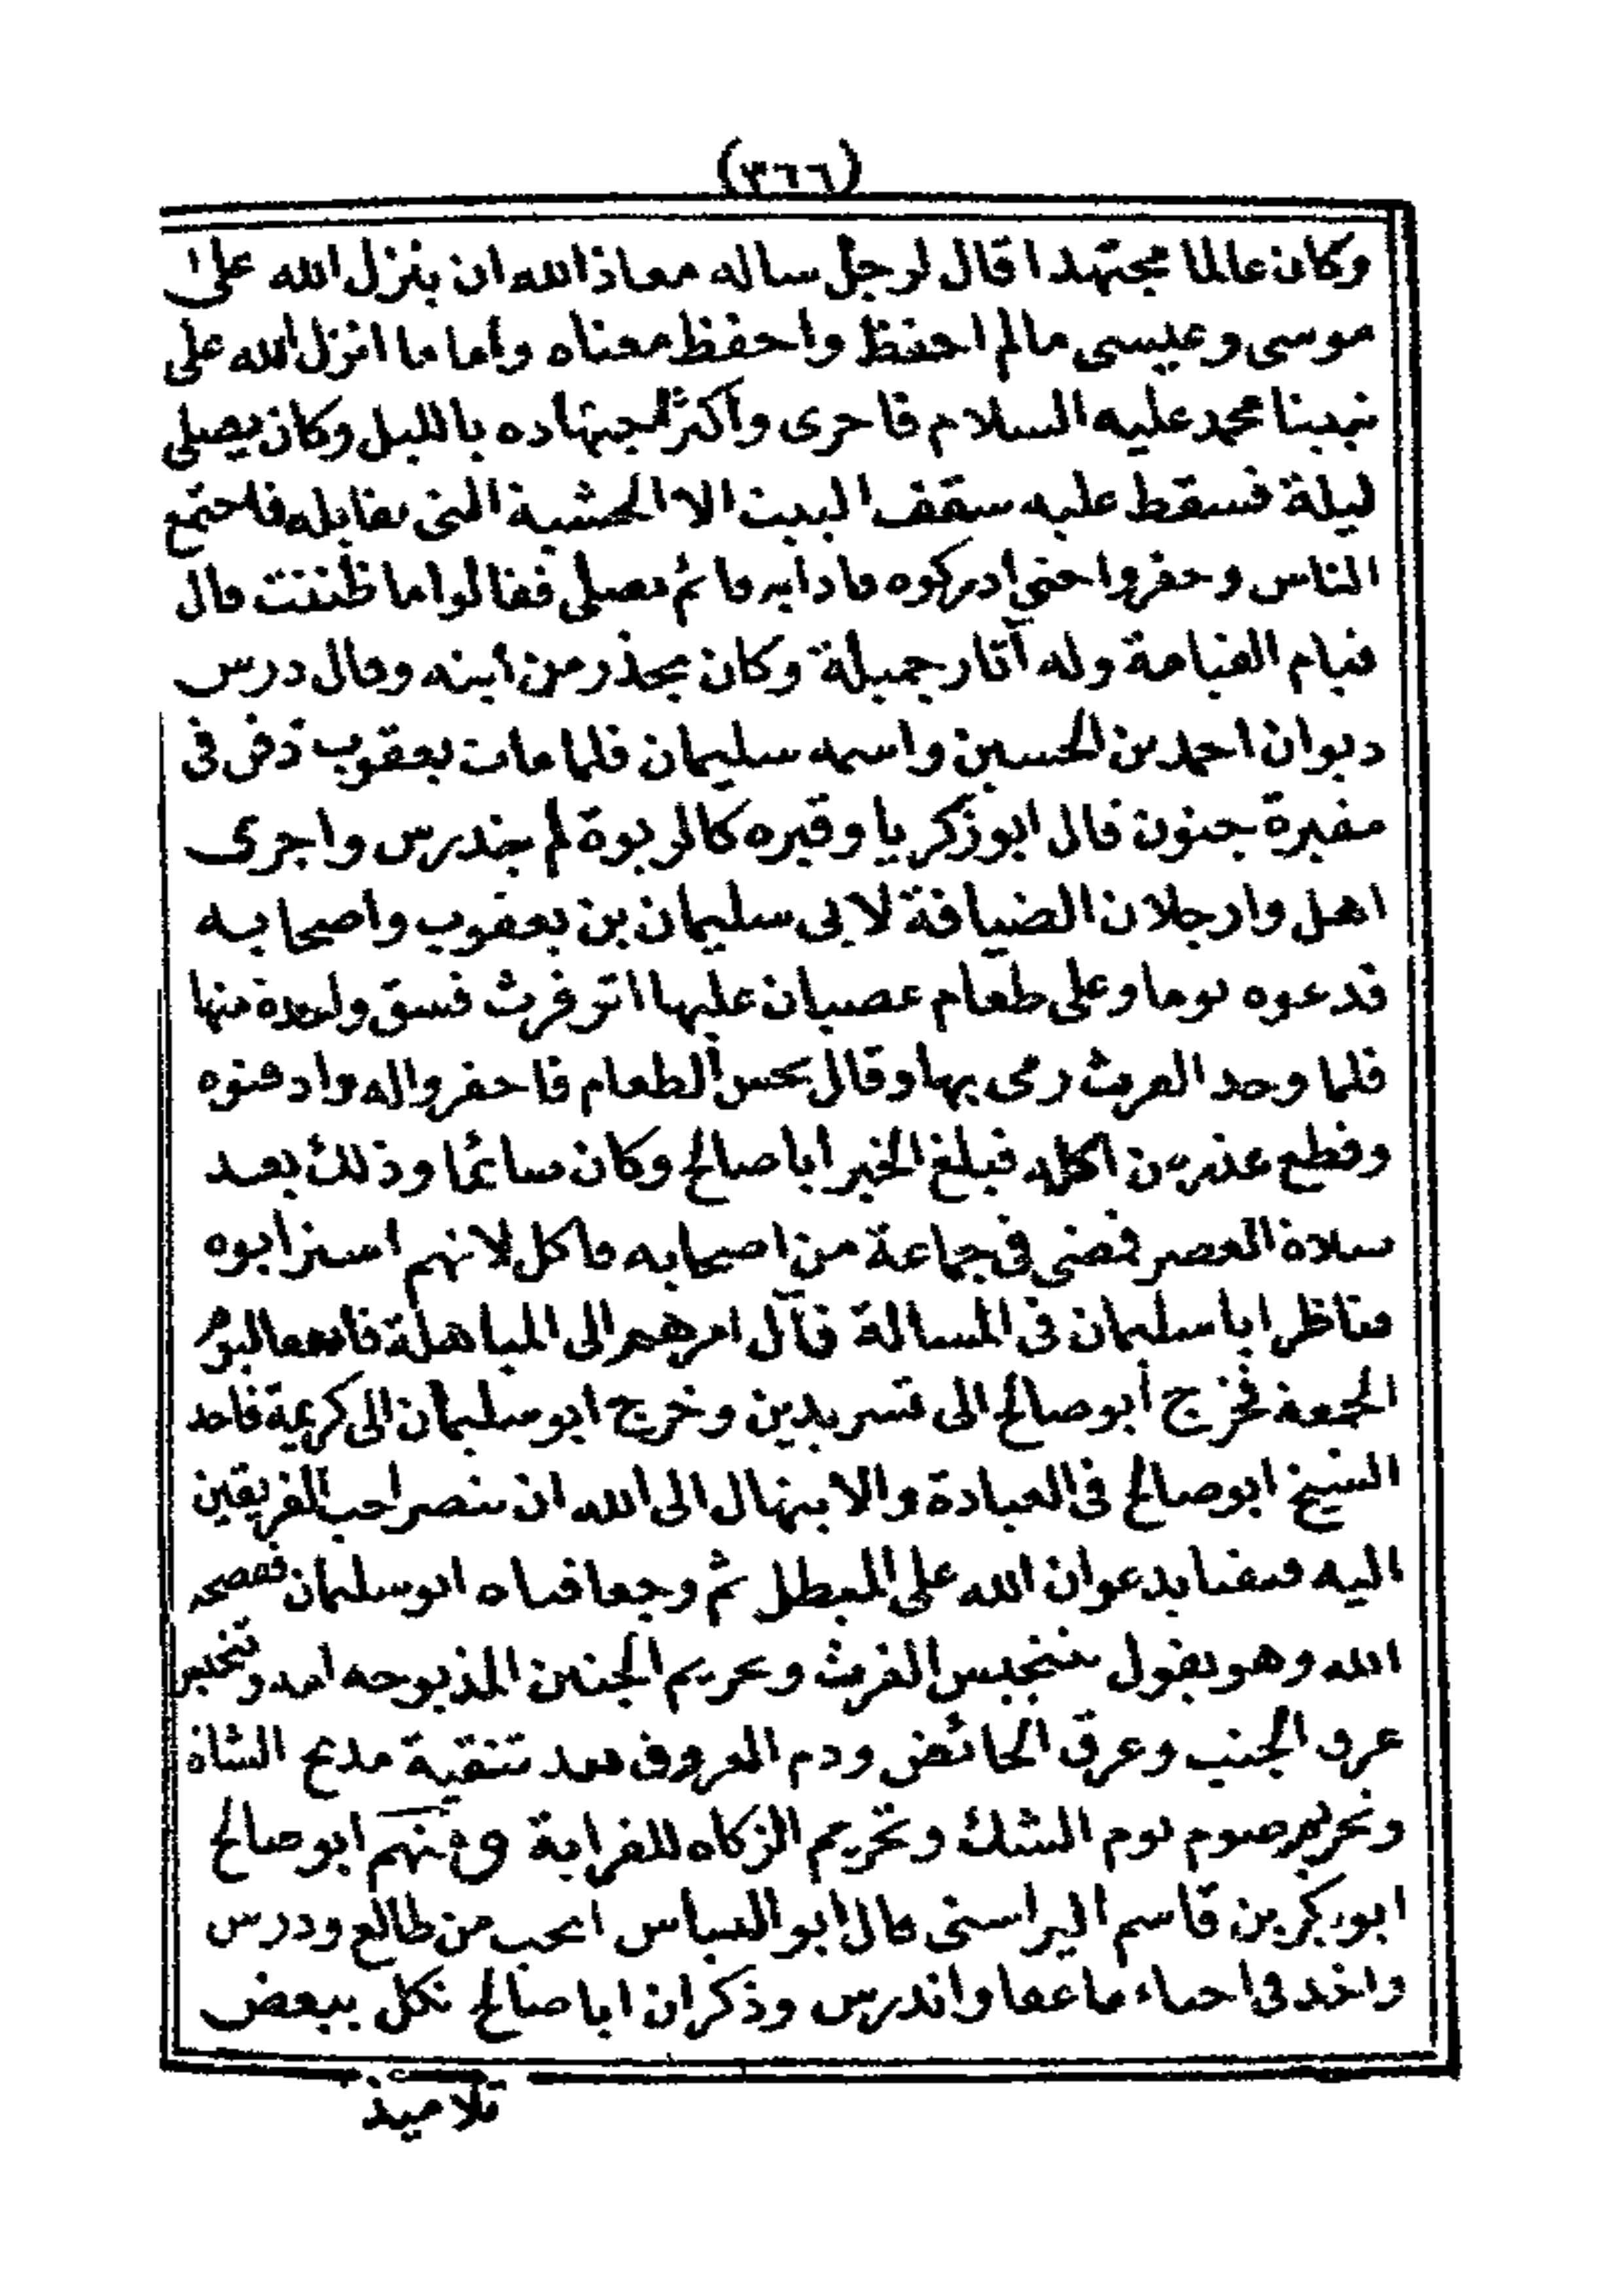 (٣٦٦)
وكان عالما مجتهدا قال لرجل ساله معاذ الله ان ينزل الله على
موسى وعيسى مالم احفظ واحفظ معناه وأما ما انزل الله على
نبينا محمد عليه السلام فاحرى وأكثر اجتهاده بالليل وكان يصلى
ليلة فسقط عليه سقف البيت الا الخشبة التى تقابله فاجتمع
الناس وحفروا حتى ادركوه فاذا به قائم يصلى فقالوا ما ظننت قال
قيام القيامة وله آثار جميلة وكان يحذر من أبنه وقال درس
ديوان احمد بن الحسين واسمه سليمان فلما مات يعقوب دفن فى
مقبرة جنون قال ابو زكريا وقبره كالربوة لم يندرس واجرى
اهل وارجلان الضيافة لابى سليمان بن يعقوب واصحابه
فدعوه يوما وعلى طعام عصبان عليها اثر فرث فسق واحدة منها
فلما وجد الفرث رمى بها وقال نجس الطعام فاحفروا له وادفنوه
وقطع عذر من اكله فبلغ الخبر ابا صالح وكان صائما وذلك بعد
صلاة العصر فمضى فى جماعة من اصحابه فاكل لانهم استرابوه
فناظر ابا سليمان فى المسالة فآل امرهم الى المباهلة اليوم
الجمعة فخرج أبو صالح الى تسريدين وخرج ابو سليمان الى كريمة فاخذ
الشيخ ابو صالح فى العبادة والابتهال الى الله ان ينصر احب الفريقين
اليه يدعوان الله على المبطل ثم ابو سليمان ففضحه
الله وهو يقول بتنجيس الفرث وتحريم الجنين المذبوحه امه وتنجيس
عرق الجنب وعرق الحائض ودم العروق بعد تنقية مذبح الشاة
وتحريم صوم يوم الشك وتحريم الزكاه للقرابة ومنهم ابو صالح
ابو بكر بن قاسم اليراسنى قال ابو العباس انجب من طالع ودرس
واخذ فى احياء ما عفا واندرس وذكر ان ابا صالح نكل ببعض
تلاميذ